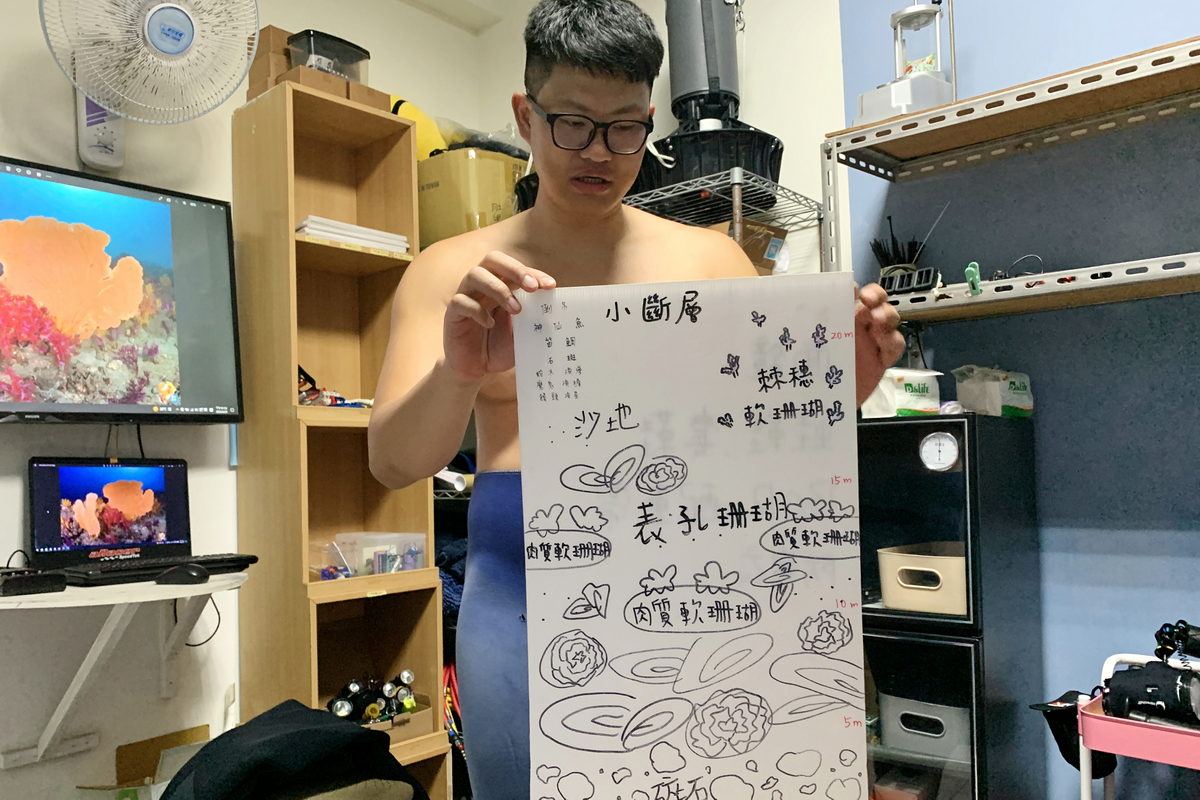 小斷層
神仙魚
笛鯛
石斑
20m
棘穗
軟珊瑚
沙地
15m
表孔珊瑚
肉質軟珊瑚
肉質軟珊瑚
10m
肉質軟珊瑚
5m
礁石